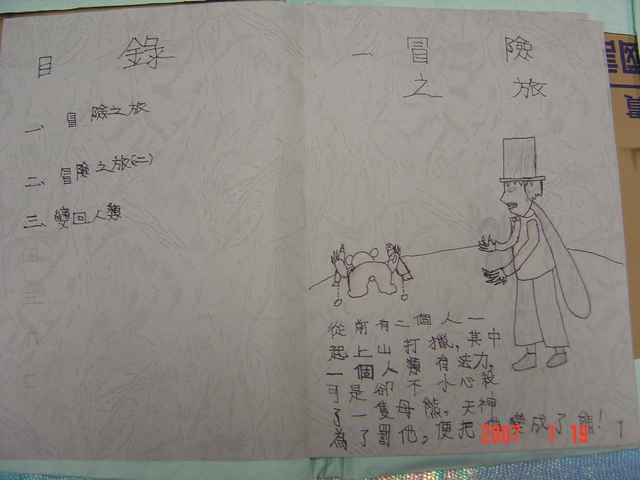 目 錄
一、冒險之旅
二、冒險之旅(二)
三、變回人類
四
五
六
一、冒險
之旅
從前有二個人一
起上山打獵,其中
一個人類有法力,
可是卻不小心殺
了一隻母熊。天神
為了罰他,便把他變成了熊!
2007 1 19